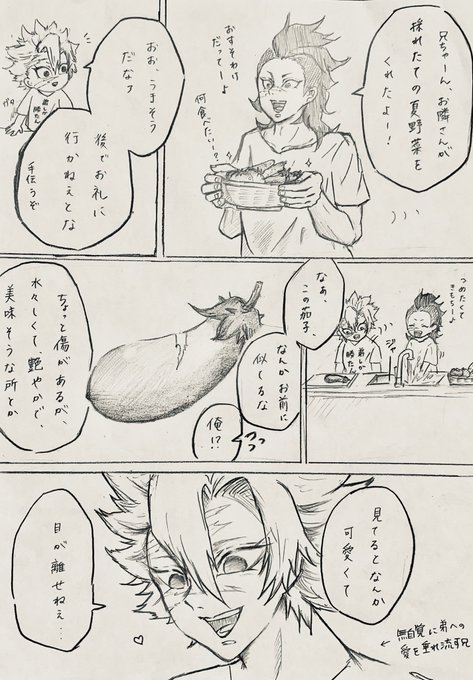 兄ちゃーん、お隣さんが
採れたての夏野菜を
くれたよー!
おすそわけ
だってーよ
何食べたいー?
おぉ、うまそう
だなァ
後でお礼に
行かねぇとな
手伝うぞ
弟しか
勝たん
つめたくて
きもちーよ
弟しか
勝たん
なぁ、
この茄子、
なんかお前に
似てるな
俺!?
ちょっと傷があるが、
水々しくて、艶やかで、
美味そうな所とか
見てるとなんか
可愛くて
目が離せねぇ…
←無自覚に弟への
愛を垂れ流す兄